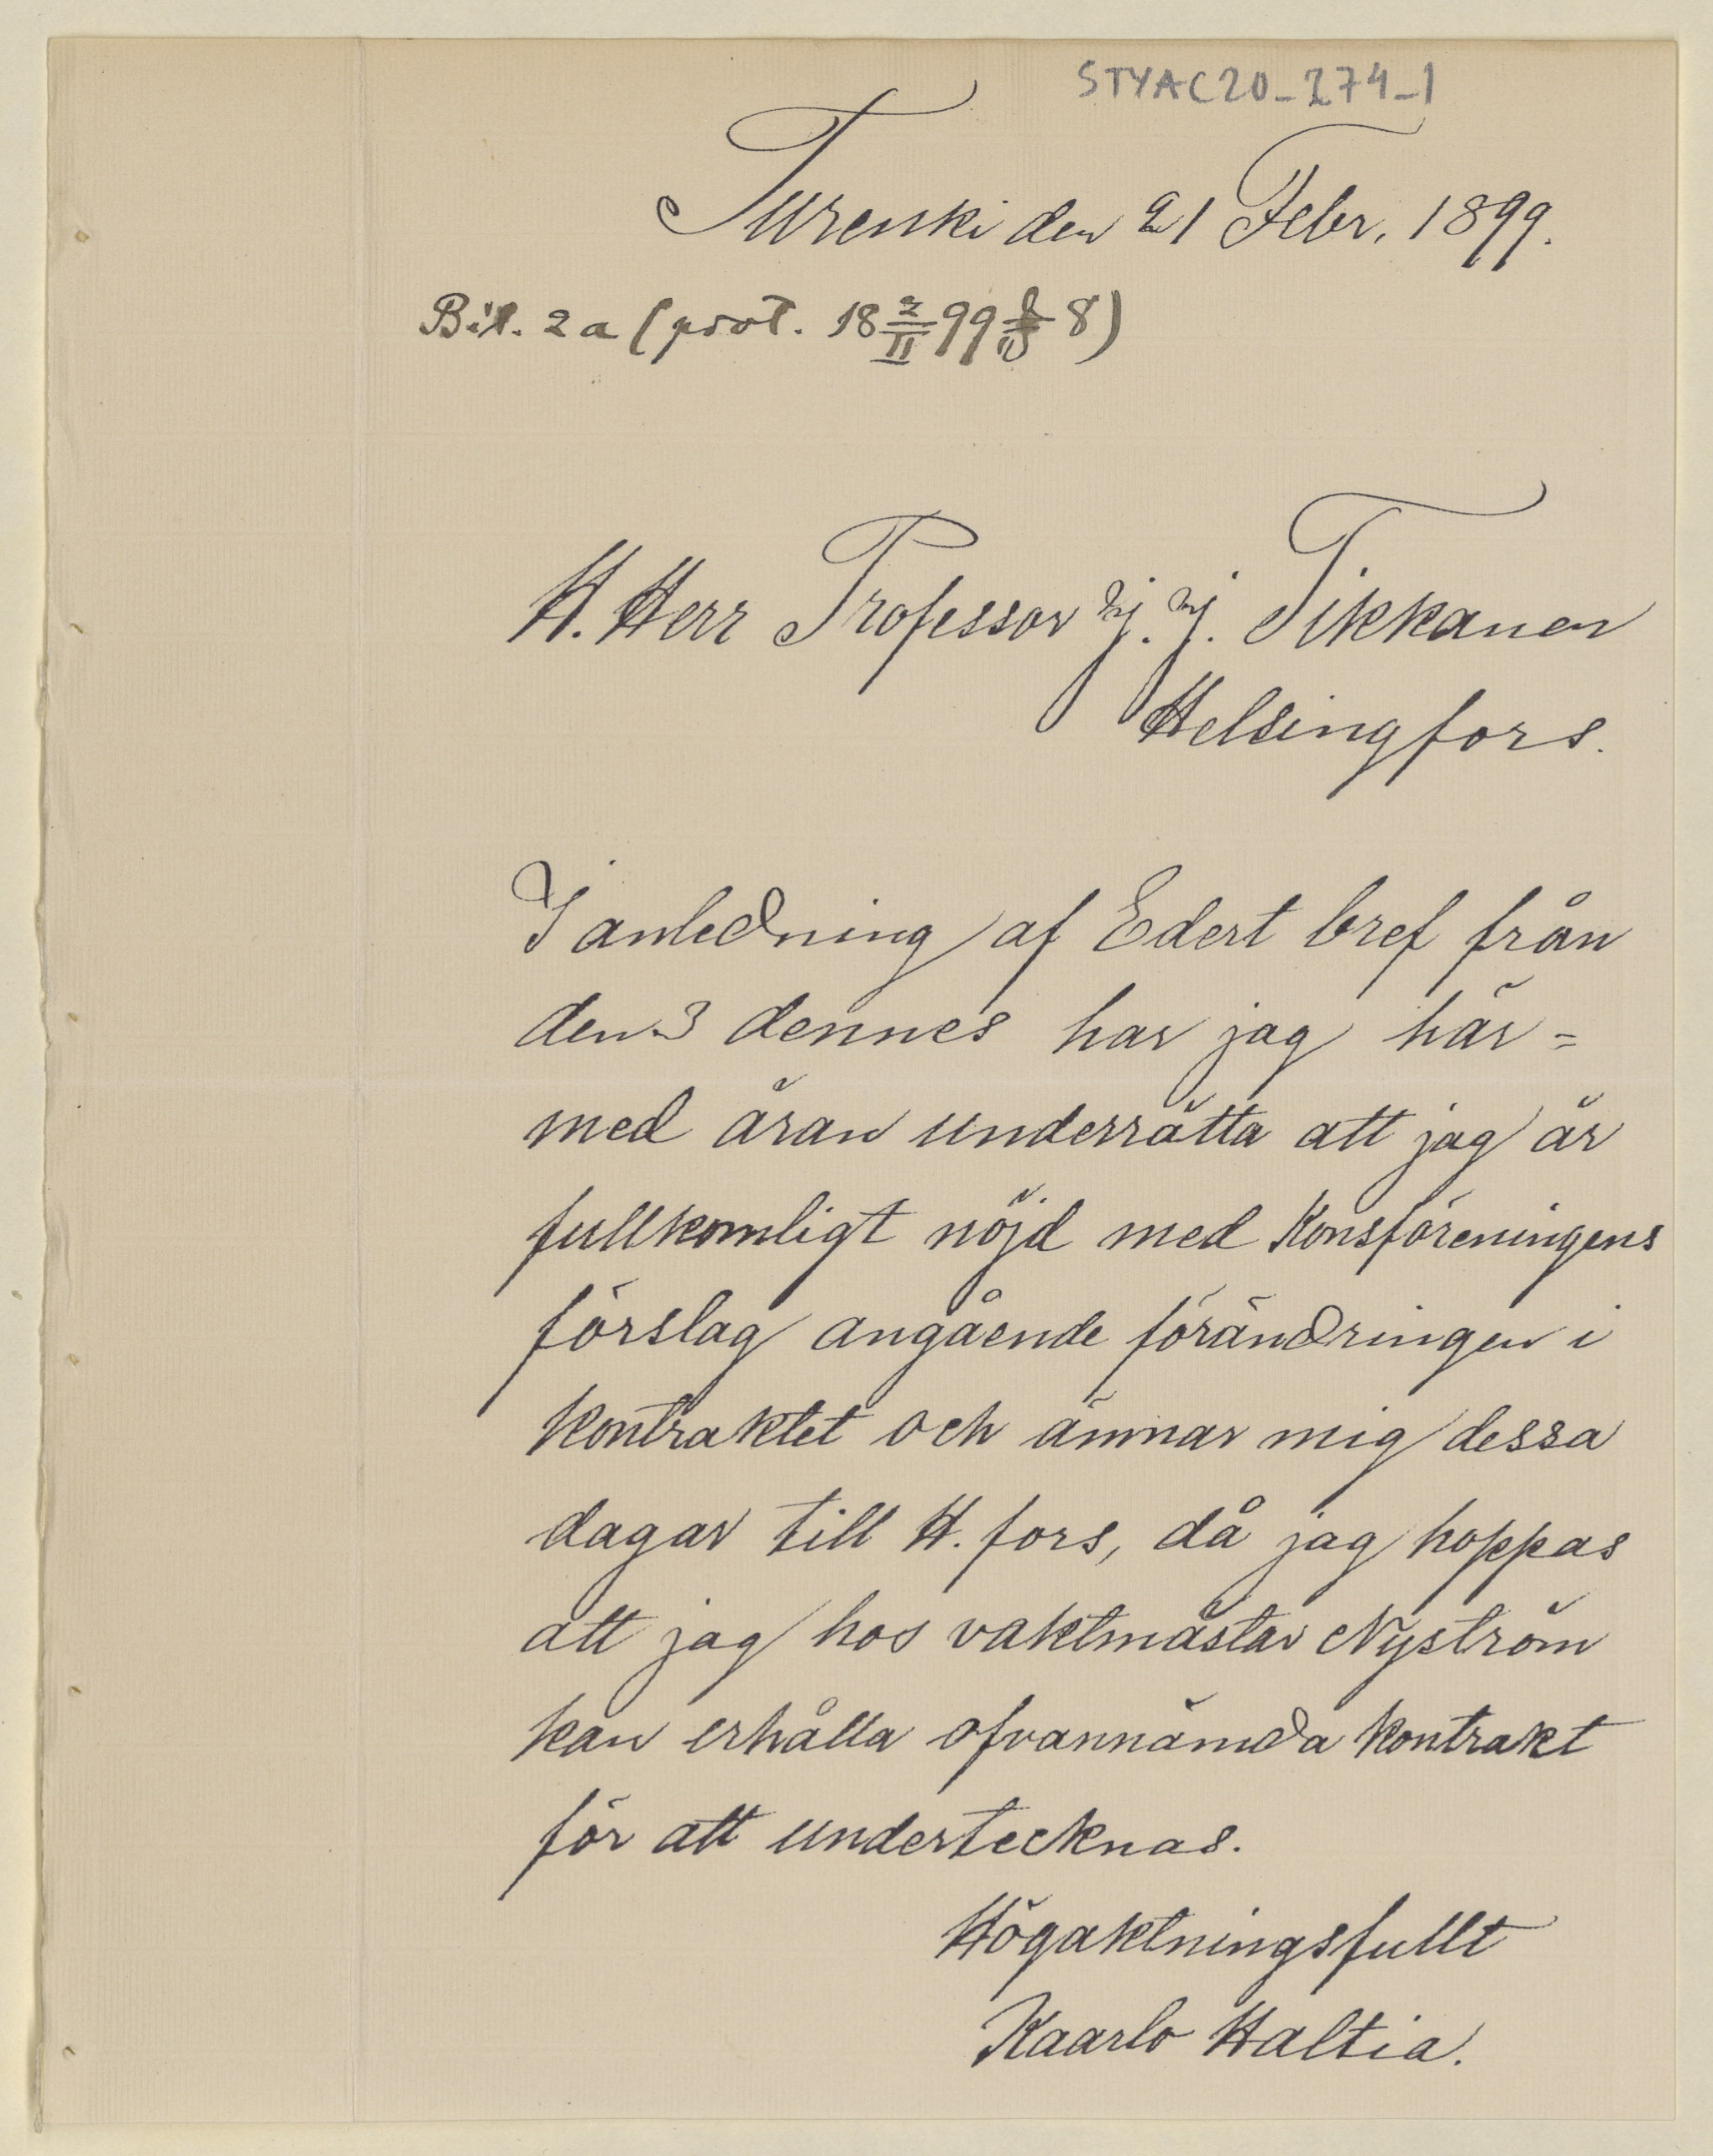 STYAC20_274_1
Turenki den 21 Febr. 1899.
Bil. 2 a (prot. 18 2/II 99 § 8)
H. Herr Professor J. J. Tikkanen
Helsingfors.
I anledning af Edert bref från
den 3 dennes har jag här=
med äran underrätta att jag är
fullkomligt nöjd med Konsföreningens
förslag angående förändringen i
Kontraktet och ämnar mig dessa
dagar till H. fors, då jag hoppas
att jag hos vaktmästar Nyström
kan erhålla ofvannämda Kontrakt
för att undertecknas.
Högaktningsfullt
Kaarlo Haltia.